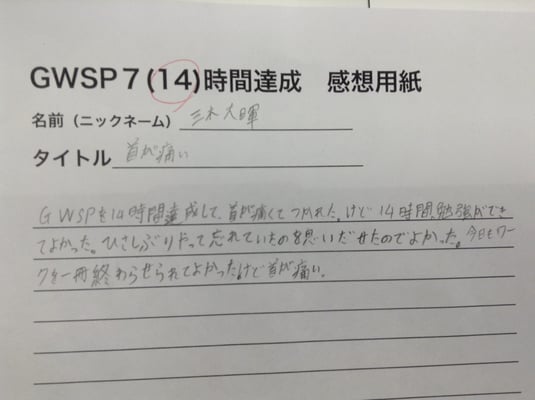 GWSP7(14)時間達成 感想用紙
名前(ニックネーム) 三木大暉
タイトル 首が痛い
GWSPを14時間達成して、首が痛くてつかれた。けど14時間勉強ができ
てよかった。ひさしぶりにやって忘れていたものを思いだせたのでよかった。今日もワー
クを一冊終わらせられてよかったけど首が痛い。